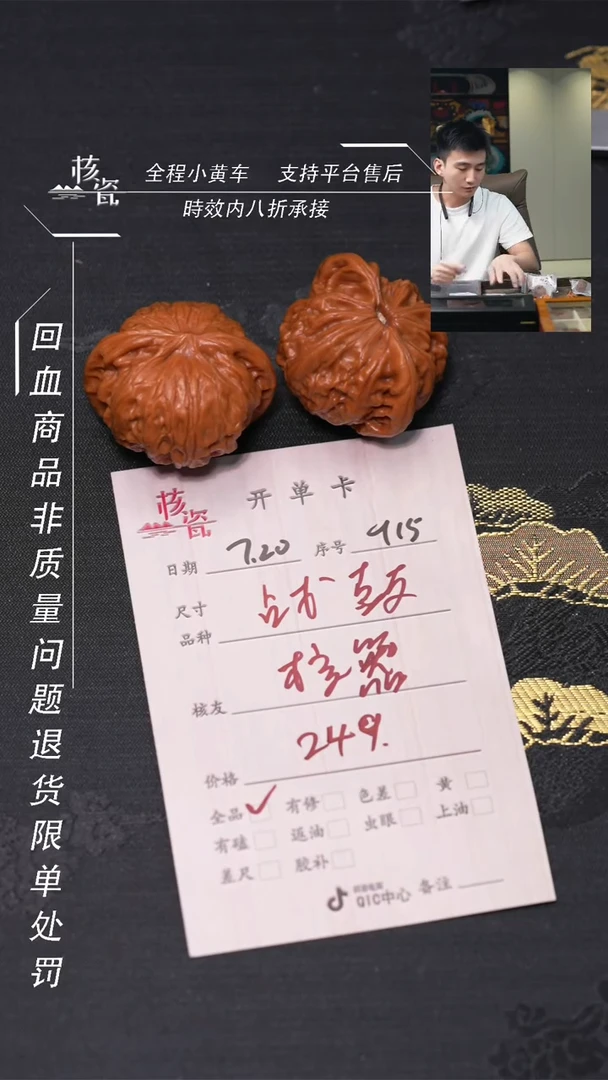 核瓷
全程小黄车 支持平台售后
時效内八折承接
回血商品非质量问题退货限单处罚
核瓷
开单卡
日期 7.20 序号 915
尺寸
品种 战鼓
核友 核器
价格 249.
全品 ✓ 有修 色差 黄
有磕 返油 虫眼 上油
差尺 胶补
QIC中心 备注